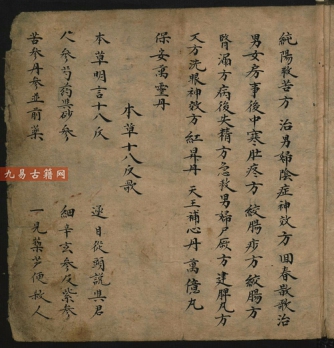 純陽救苦方 治男婦陰症神效方 回春散歌治
男女房事後中寒肚疼方 絞腸痧方 絞腸方
腎漏方 病後失精方 急救男婦尸厥方 建脾丸方
又方洗眼神效方 紅昇丹 天王補心丹 萬億丸
保安萬靈丹
本草十八反歌
本草明言十八反 逐目從頭說與君
人參芍藥與沙參 細辛玄參及紫參
苦參丹參並前藥 一見藜芦便殺人
九易古籍网